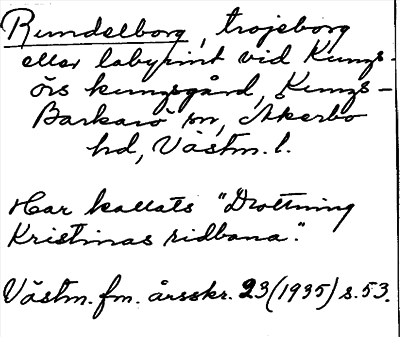 Rundelborg, trojeborg
eller labyrint vid Kungs-
örs kungsgård, Kungs-
Barkarö sn, Åkerbo
hd, Västm. l.
Har kallats "Drottning
Kristinas ridbana".
Västm. fm. årsskr. 23 (1935) s. 53.